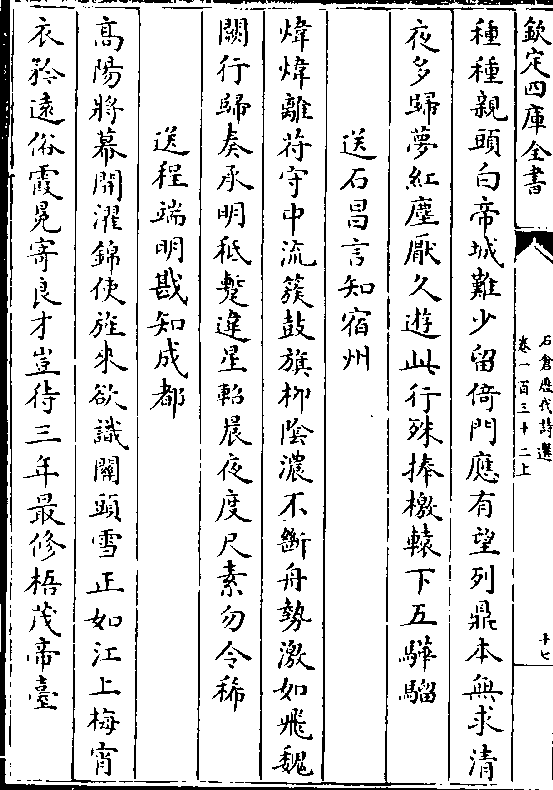 欽定四庫全書
石倉歷代詩選
卷一百三十二上
十七
種種親頭白帝城難少留倚門應有望列鼎本無求清
夜多歸夢紅塵厭久遊此行殊捧檄轅下五驊騮
送石昌言知宿州
煒煒離符守中流簇鼓旗柳陰濃不斷舟勢激如飛魏
闕行歸奏承明秪蹔違星軺晨夜度尺素勿令稀
送程端明戡知成都
高陽將幕開濯錦使旌來欲識關頭雪正如江上梅宵
衣矜遠俗霞冕寄良才豈待三年最修梧茂帝臺